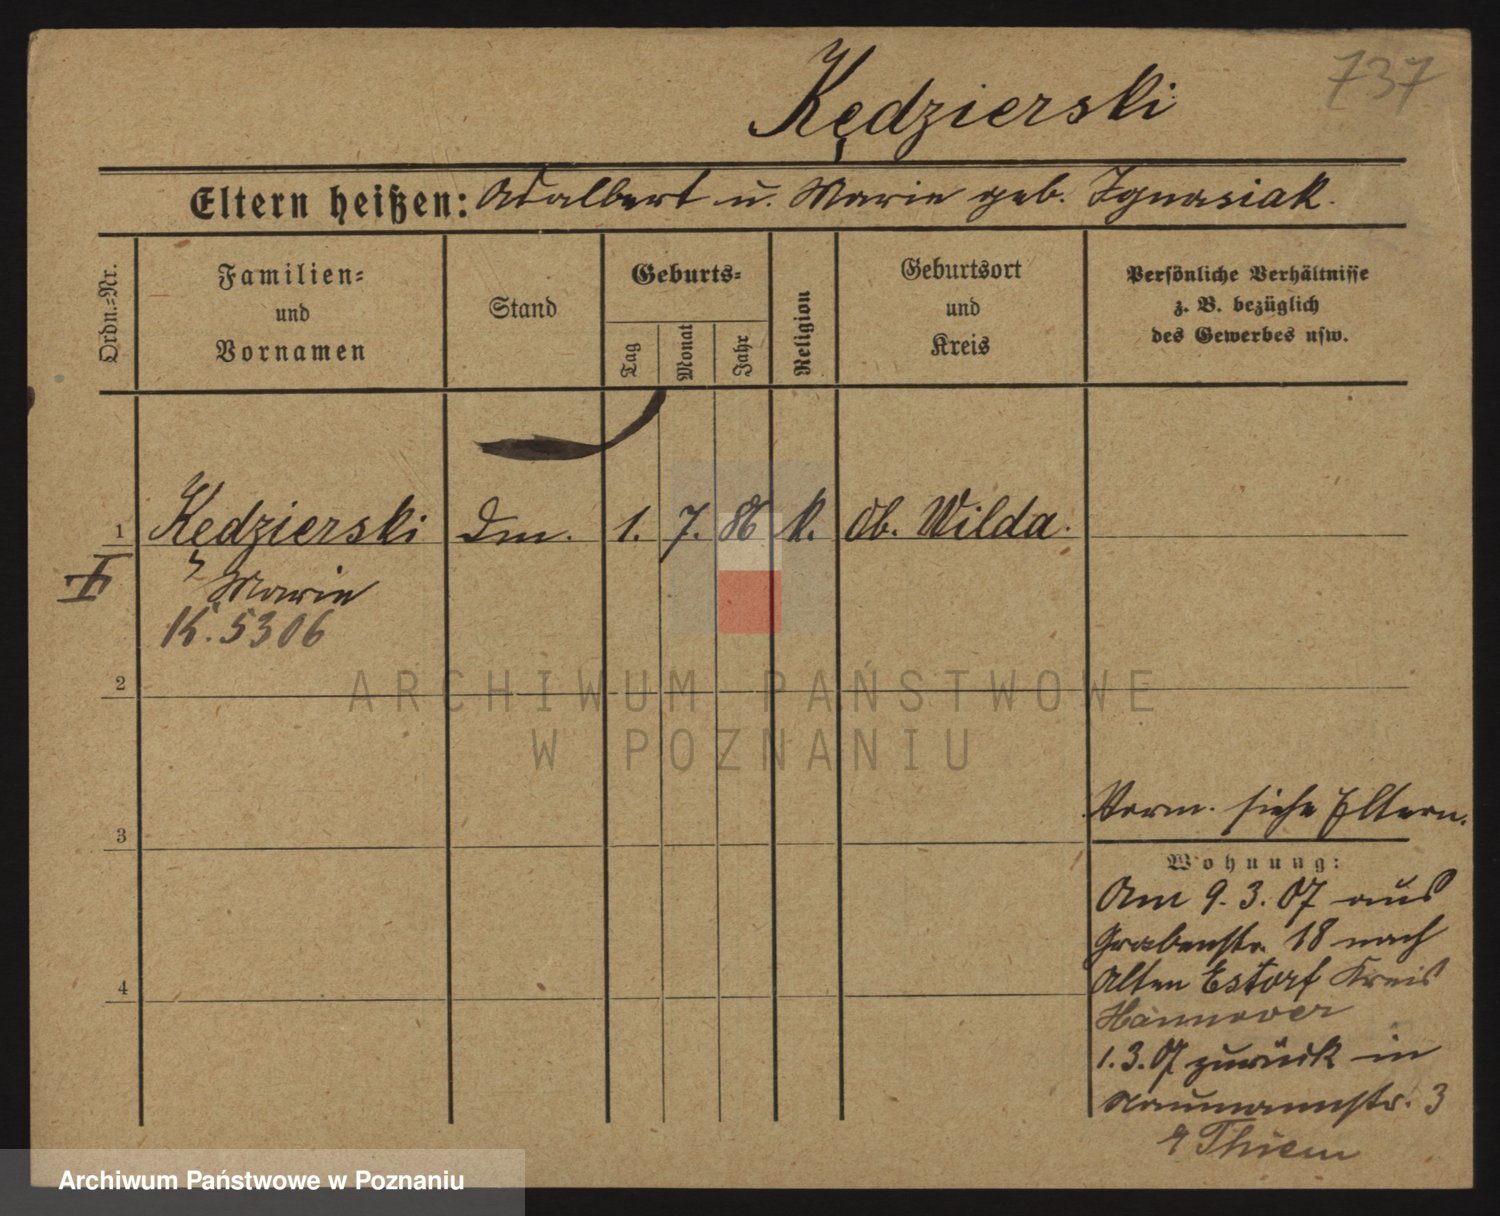 737
Kędzierski
Eltern heißen: Adalbert u. Marie geb. Ignasiak.
Ordn.-Nr.
Familien- und Vornamen
Stand
Geburts-
Tag
Monat
Jahr
Religion
Geburtsort und Kreis
Persönliche Verhältnisse
z. B. bezüglich
des Gewerbes usw.
1 Kędzierski Dm. 1. 7. 86 k. Ob. Wilda.
Marie
K. 5306
2
ARCHIWUM PAŃSTWOWE
W POZNANIU
Vorm. siehe Eltern.
3
Wohnung:
Am 9. 3. 07 aus
Grabenstr. 18 nach
Alten Estorf Kreis
4
Hannover
1. 3. 07 zurück in
Naumannstr. 3
Thiem
Archiwum Państwowe w Poznaniu